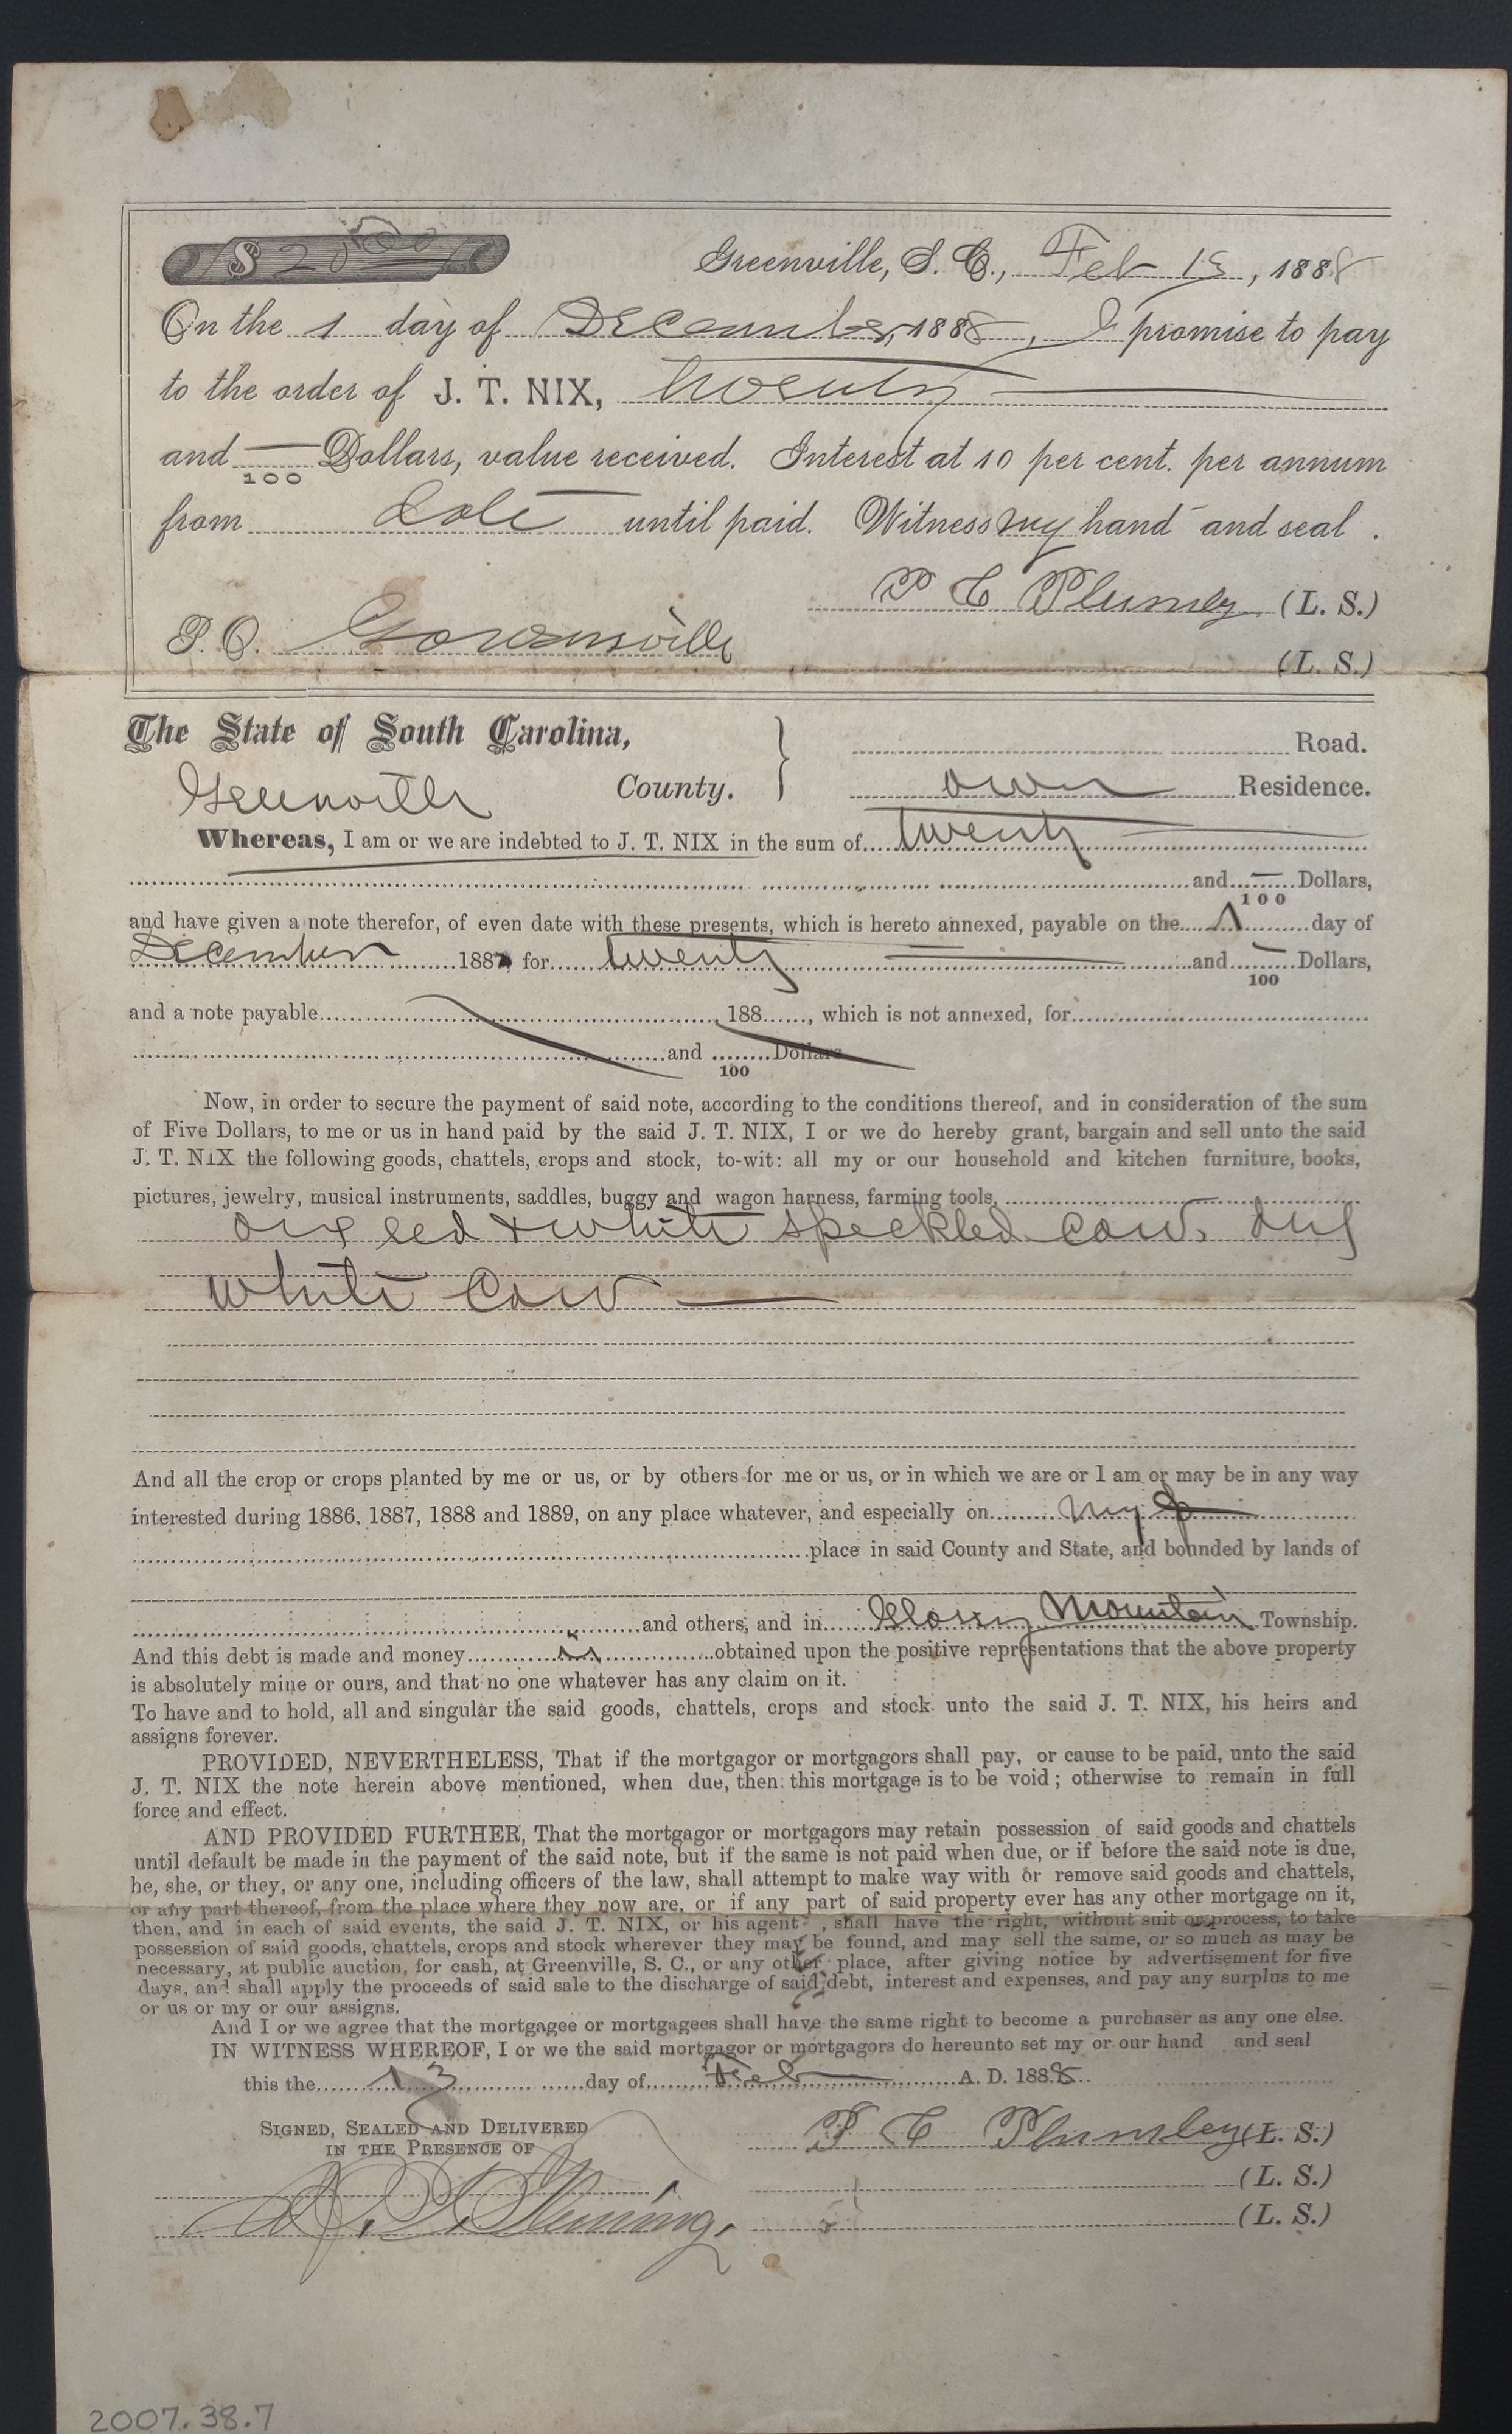 $ 20 00
Greenville, S. C., Feb 13, 1888
On the 1 day of December, 1888, I promise to pay
to the order of J. T. NIX, twenty
and /100 Dollars, value received. Interest at 10 per cent. per annum
from date until paid. Witness my hand and seal.
P C Plumley (L. S.)
P. O. Gowensville
(L. S.)
The State of South Carolina,
Road.
Greenville County.
own Residence.
Whereas, I am or we are indebted to J. T. NIX in the sum of twenty
and /100 Dollars,
and have given a note therefor, of even date with these presents, which is hereto annexed, payable on the 1 day of
December 188 for twenty and /100 Dollars,
and a note payable 188, which is not annexed, for
and /100 Dollars
Now, in order to secure the payment of said note, according to the conditions thereof, and in consideration of the sum
of Five Dollars, to me or us in hand paid by the said J. T. NIX, I or we do hereby grant, bargain and sell unto the said
J. T. NIX the following goods, chattels, crops and stock, to-wit: all my or our household and kitchen furniture, books,
pictures, jewelry, musical instruments, saddles, buggy and wagon harness, farming tools,
one red & white speckled cow, one
white cow
And all the crop or crops planted by me or us, or by others for me or us, or in which we are or I am or may be in any way
interested during 1886, 1887, 1888 and 1889, on any place whatever, and especially on my
place in said County and State, and bounded by lands of
and others, and in Glassy Mountain Township.
And this debt is made and money is obtained upon the positive representations that the above property
is absolutely mine or ours, and that no one whatever has any claim on it.
To have and to hold, all and singular the said goods, chattels, crops and stock unto the said J. T. NIX, his heirs and
assigns forever.
PROVIDED, NEVERTHELESS, That if the mortgagor or mortgagors shall pay, or cause to be paid, unto the said
J. T. NIX the note herein above mentioned, when due, then this mortgage is to be void; otherwise to remain in full
force and effect.
AND PROVIDED FURTHER, That the mortgagor or mortgagors may retain possession of said goods and chattels
until default be made in the payment of the said note, but if the same is not paid when due, or if before the said note is due,
he, she, or they, or any one, including officers of the law, shall attempt to make way with or remove said goods and chattels,
or any part thereof, from the place where they now are, or if any part of said property ever has any other mortgage on it,
then, and in each of said events, the said J. T. NIX, or his agent, shall have the right, without suit or process, to take
possession of said goods, chattels, crops and stock wherever they may be found, and may sell the same, or so much as may be
necessary, at public auction, for cash, at Greenville, S. C., or any other place, after giving notice by advertisement for five
days, and shall apply the proceeds of said sale to the discharge of said debt, interest and expenses, and pay any surplus to me
or us or my or our assigns.
And I or we agree that the mortgagee or mortgagees shall have the same right to become a purchaser as any one else.
IN WITNESS WHEREOF, I or we the said mortgagor or mortgagors do hereunto set my or our hand and seal
this the 13 day of Feb A. D. 1888.
SIGNED, SEALED AND DELIVERED
IN THE PRESENCE OF
P C Plumley (L. S.)
(L. S.)
Fleming.
(L. S.)
2007.38.7